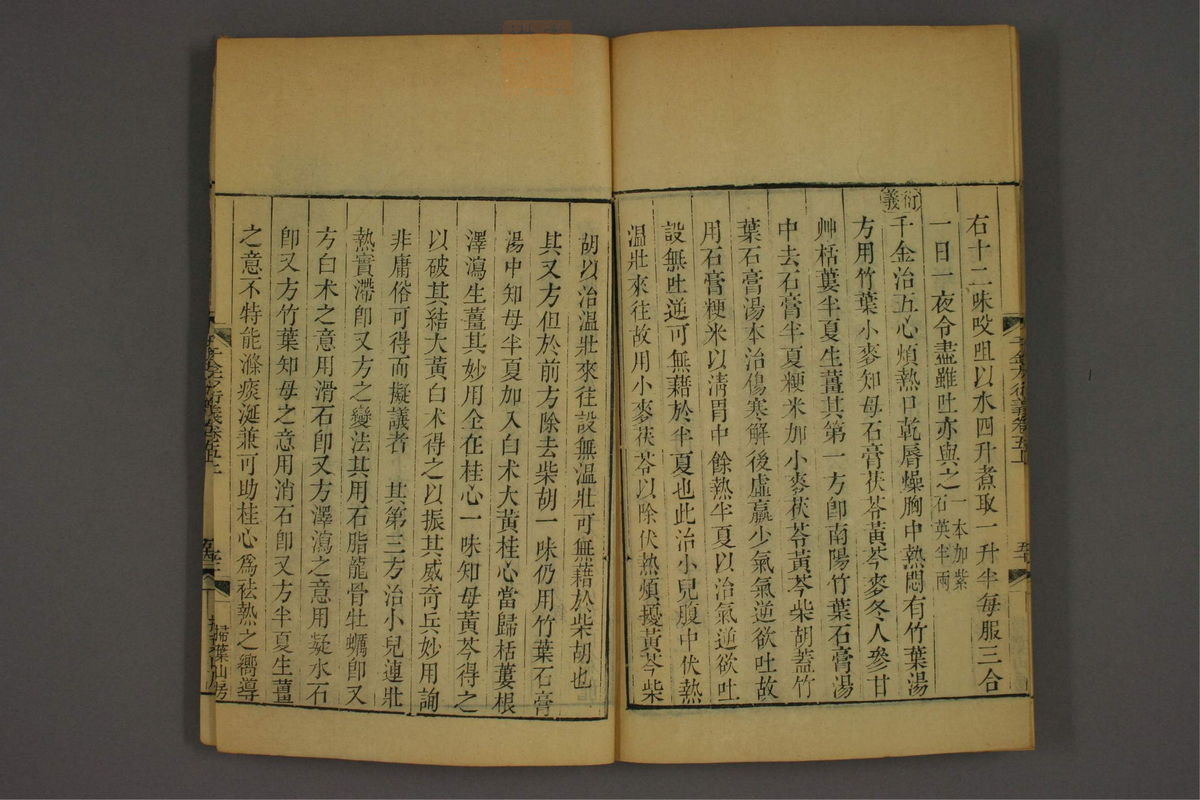 右十二味㕮咀以水四升煮取一升半每服三合
一日一夜令盡雖吐亦與之一本加紫石英半兩
衍義
千金治五心煩熱口乾唇燥胸中熱悶有竹葉湯
方用竹葉小麥知母石膏茯苓黃芩麥冬人參甘
艸栝蔞半夏生薑其第一方卽南陽竹葉石膏湯
中去石膏半夏粳米加小麥茯苓黃芩柴胡蓋竹
葉石膏湯本治傷寒解後虛羸少氣氣逆欲吐故
用石膏粳米以淸胃中餘熱半夏以治氣逆欲吐
設無吐逆可無藉於半夏也此治小兒腹中伏熱
溫壯來往故用小麥茯苓以除伏熱煩擾黃芩柴
胡以治溫壯來往設無溫壯可無藉於柴胡也
其又方但於前方除去柴胡一味仍用竹葉石膏
湯中知母半夏加入白朮大黃桂心當歸栝蔞根
澤瀉生薑其妙用全在桂心一味知母黃芩得之
以破其結大黃白朮得之以振其威奇兵妙用詢
非庸俗可得而擬議者 其第三方治小兒連壯
熱實滯卽又方之變法其用石脂龍骨牡蠣卽又
方白朮之意用滑石卽又方澤瀉之意用凝水石
卽又方竹葉知母之意用消石卽又方半夏生薑
之意不特能滌痰涎兼可助桂心爲祛熱之嚮導
千金方衍義卷五上
掃葉山房